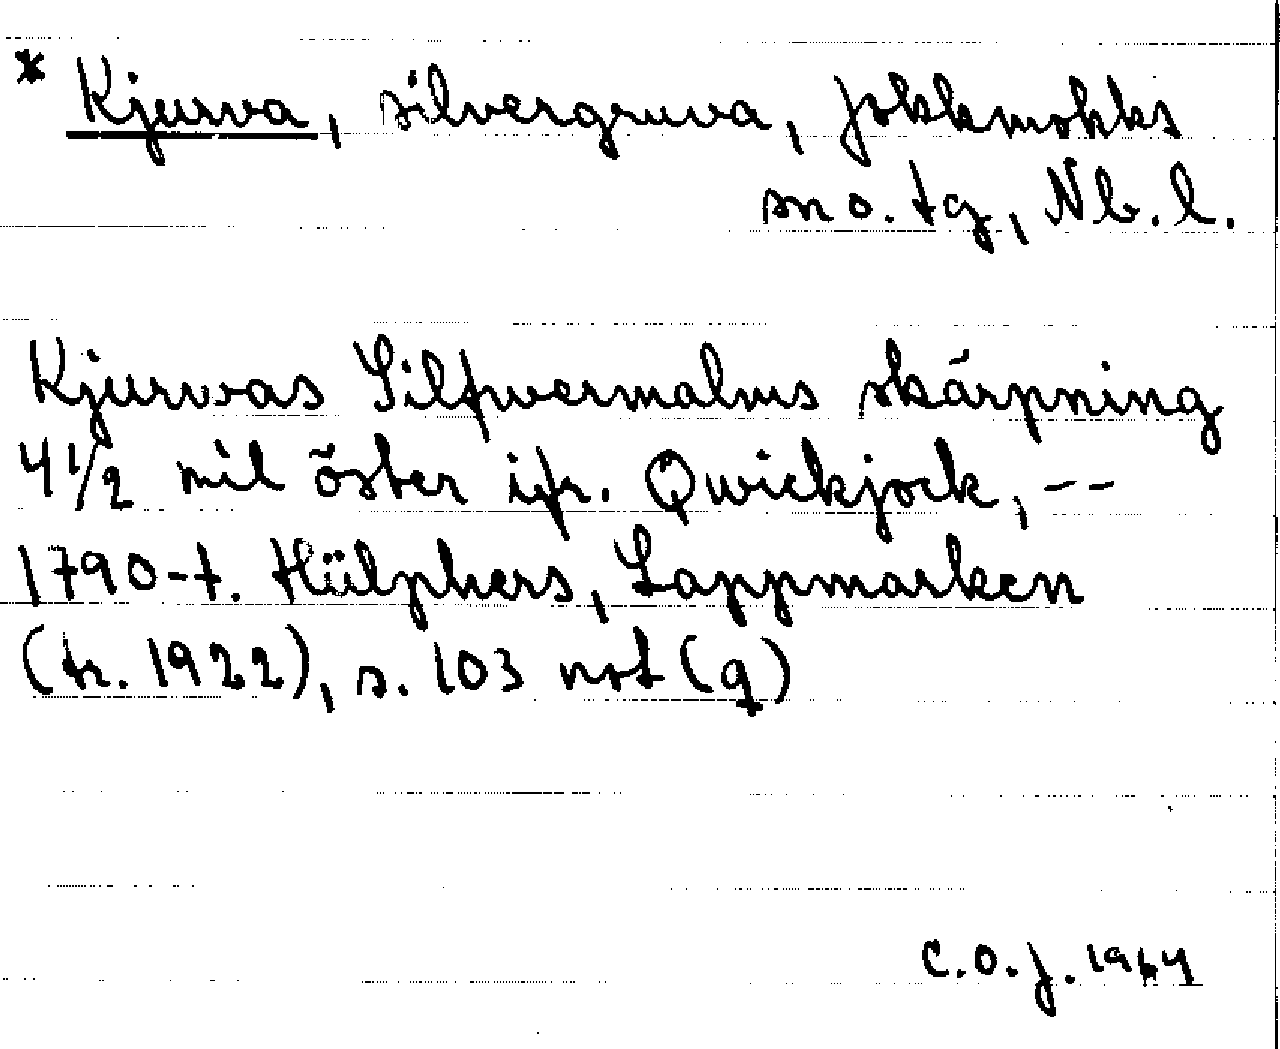 * Kjurva, silvergruva, Jokkmokks
sn o. tg, Nb. l.
Kjurwas Silfwermalms skärpning
4 1/2 mil öster ifr. Qwickjock, --
1790-t. Hülphers, Lappmarken
(tr. 1922), s. 103 not (q)
C.O.J. 1964